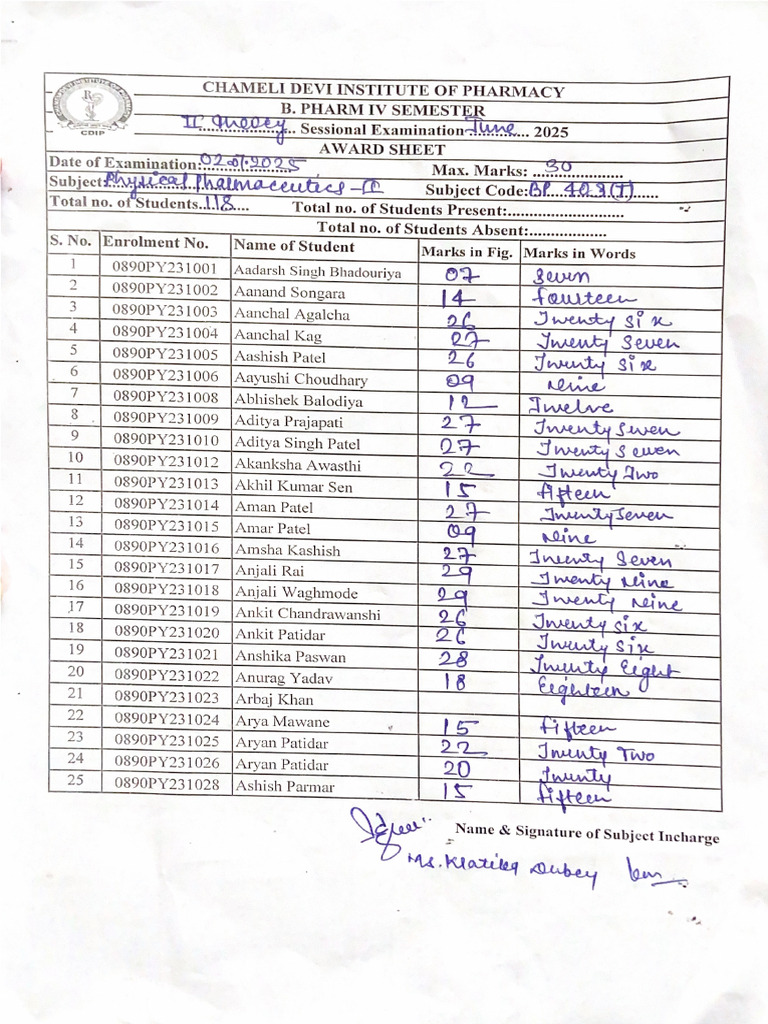 CHAMELI DEVI INSTITUTE OF PHARMACY
B. PHARM IV SEMESTER
II Theory Sessional Examination June 2025
AWARD SHEET
CDIP
Date of Examination: 02.07.2025 Max. Marks: 30
Subject: Physical Pharmaceutics-II Subject Code: BP 403(T)
Total no. of Students 118 Total no. of Students Present:
Total no. of Students Absent:
S. No. Enrolment No. Name of Student Marks in Fig. Marks in Words
1 0890PY231001 Aadarsh Singh Bhadouriya 07 Seven
2 0890PY231002 Aanand Songara 14 fourteen
3 0890PY231003 Aanchal Agalcha 26 Twenty Six
4 0890PY231004 Aanchal Kag 27 Twenty Seven
5 0890PY231005 Aashish Patel 26 Twenty Six
6 0890PY231006 Aayushi Choudhary 09 Nine
7 0890PY231008 Abhishek Balodiya 12 Twelve
8 0890PY231009 Aditya Prajapati 27 Twenty Seven
9 0890PY231010 Aditya Singh Patel 27 Twenty Seven
10 0890PY231012 Akanksha Awasthi 22 Twenty Two
11 0890PY231013 Akhil Kumar Sen 15 fifteen
12 0890PY231014 Aman Patel 27 Twenty Seven
13 0890PY231015 Amar Patel 09 Nine
14 0890PY231016 Amsha Kashish 27 Twenty Seven
15 0890PY231017 Anjali Rai 29 Twenty Nine
16 0890PY231018 Anjali Waghmode 29 Twenty Nine
17 0890PY231019 Ankit Chandrawanshi 26 Twenty Six
18 0890PY231020 Ankit Patidar 26 Twenty Six
19 0890PY231021 Anshika Paswan 28 Twenty Eight
20 0890PY231022 Anurag Yadav 18 Eighteen
21 0890PY231023 Arbaj Khan
22 0890PY231024 Arya Mawane 15 fifteen
23 0890PY231025 Aryan Patidar 22 Twenty Two
24 0890PY231026 Aryan Patidar 20 Twenty
25 0890PY231028 Ashish Parmar 15 fifteen
Name & Signature of Subject Incharge
Ms. Kratika Dubey